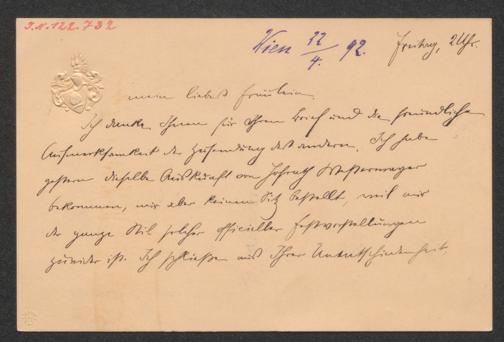 I.N. 122.732
Wien 22/4. 92.
Freitag, 2 Uhr.
mein liebes Fräulein
Ich danke Ihnen für Ihren Brief und die freundliche
Aufmerksamkeit der Zusendung des anderen. Ich habe
gestern dieselbe Auskunft von Hofrath
bekommen, mir aber keinen Sitz bestellt, weil mir
der ganze Stil solcher officieller Festvorstellungen
zuwider ist. Ich schließe aus Ihrer Unentschiedenheit,